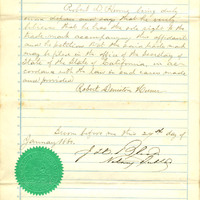 Robert D. Dunn being duly
sworn deposes and says that he verily
believes that he has the sole right to the
trademark accompanying the affidavit
and
that the same
may be filed in the office of the Secretary
of State of the State of California in ac-
cordance with the law in such cases made
and provided
Robert Downton
Sworn before me this 24th day of
January 188
Notary Public